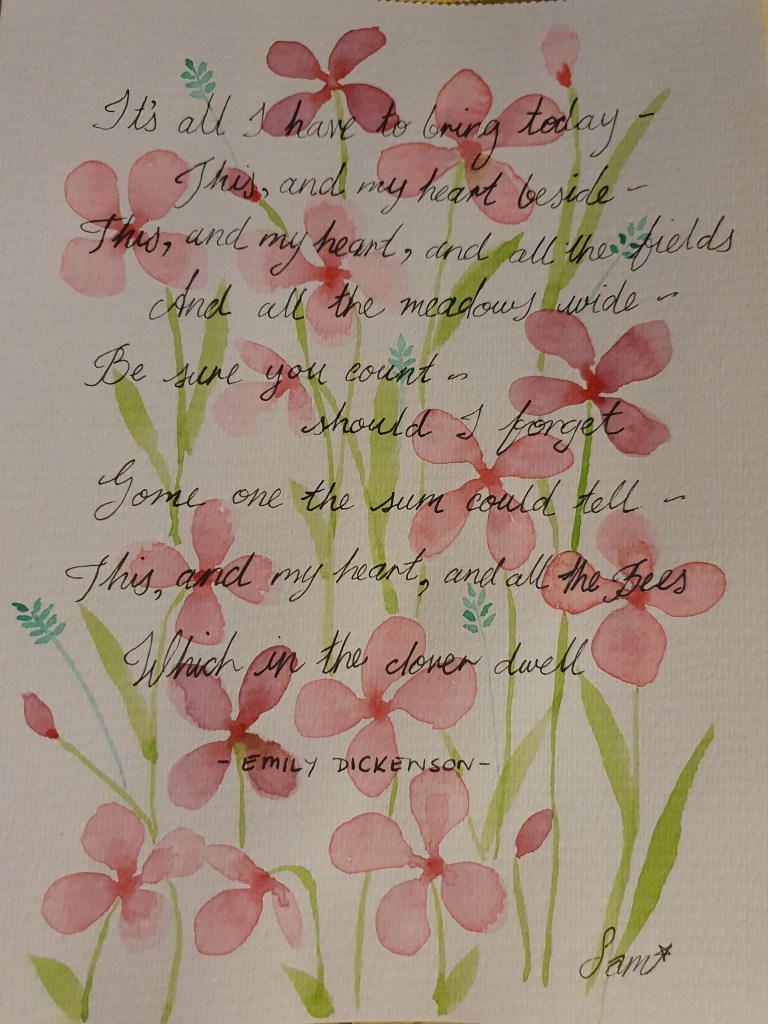 It's all I have to bring today -
This, and my heart beside -
This, and my heart, and all the fields
And all the meadows wide -
Be sure you count -
should I forget
Some one the sum could tell -
This, and my heart, and all the Bees
Which in the clover dwell
- EMILY DICKENSON -
Sam*